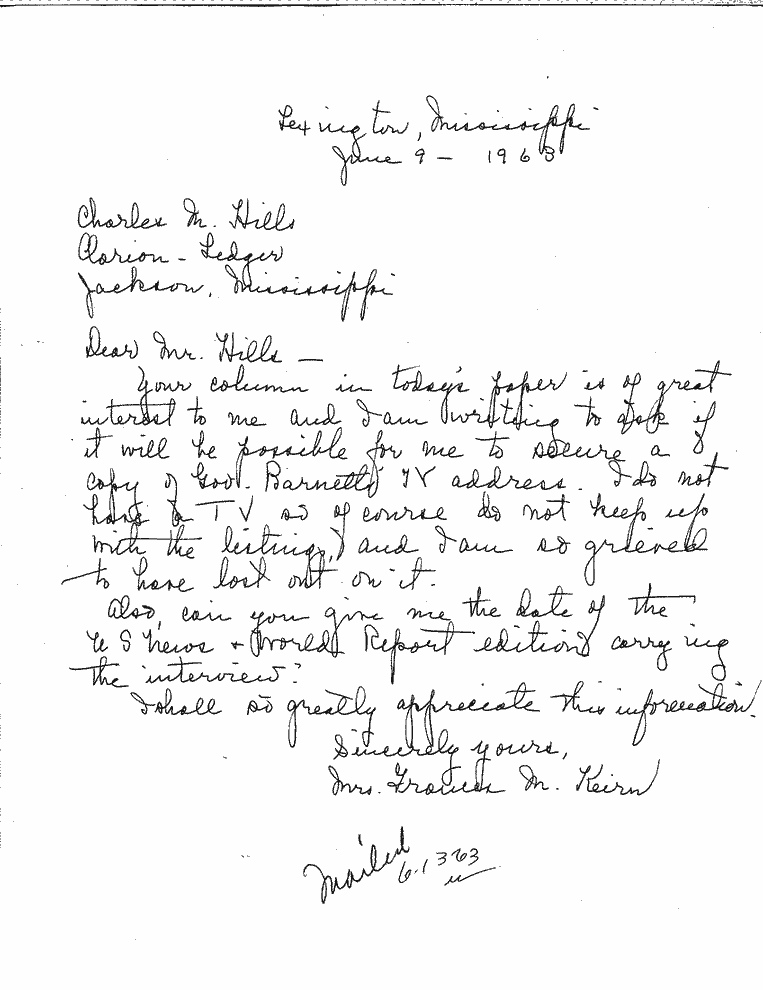 Lexington, Mississippi
June 9 - 1963
Charles M. Hills
Clarion - Ledger
Jackson, Mississippi
Dear Mr. Hills —
Your column in today's paper is of great
interest to me and I am writing to ask if
it will be possible for me to secure a
copy of Gov. Barnett's TV address. I do not
have a TV so of course do not keep up
with the listings, and I am so grieved
to have lost out on it.
Also, can you give me the date of the
U S News + World Report edition carrying
the interview?
I shall so greatly appreciate this information.
Sincerely yours,
Mrs. Frances M. Keirn
Mailed
6-13-63